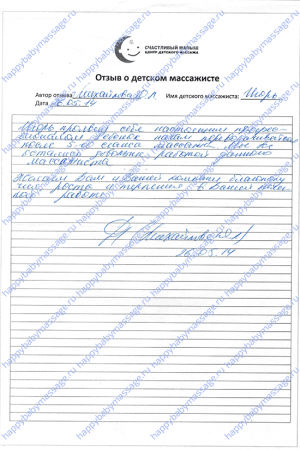 СЧАСТЛИВЫЙ МАЛЫШ
ЦЕНТР ДЕТСКОГО МАССАЖА
Отзыв о детском массажисте
Автор отзыва Михайлова Ю Л Имя детского массажиста: Игорь
Дата 26.05.14
Игорь проявил себя настоящим
Ребенок начал переворачиваться
после 5-ого сеанса массажа. Мы
остались довольны работой данного
массажиста
Желаем Вам и Вашей компании
роста и терпения в Вашей
работе
Михайлова Ю Л
26.05.14
happybabymassage.ru